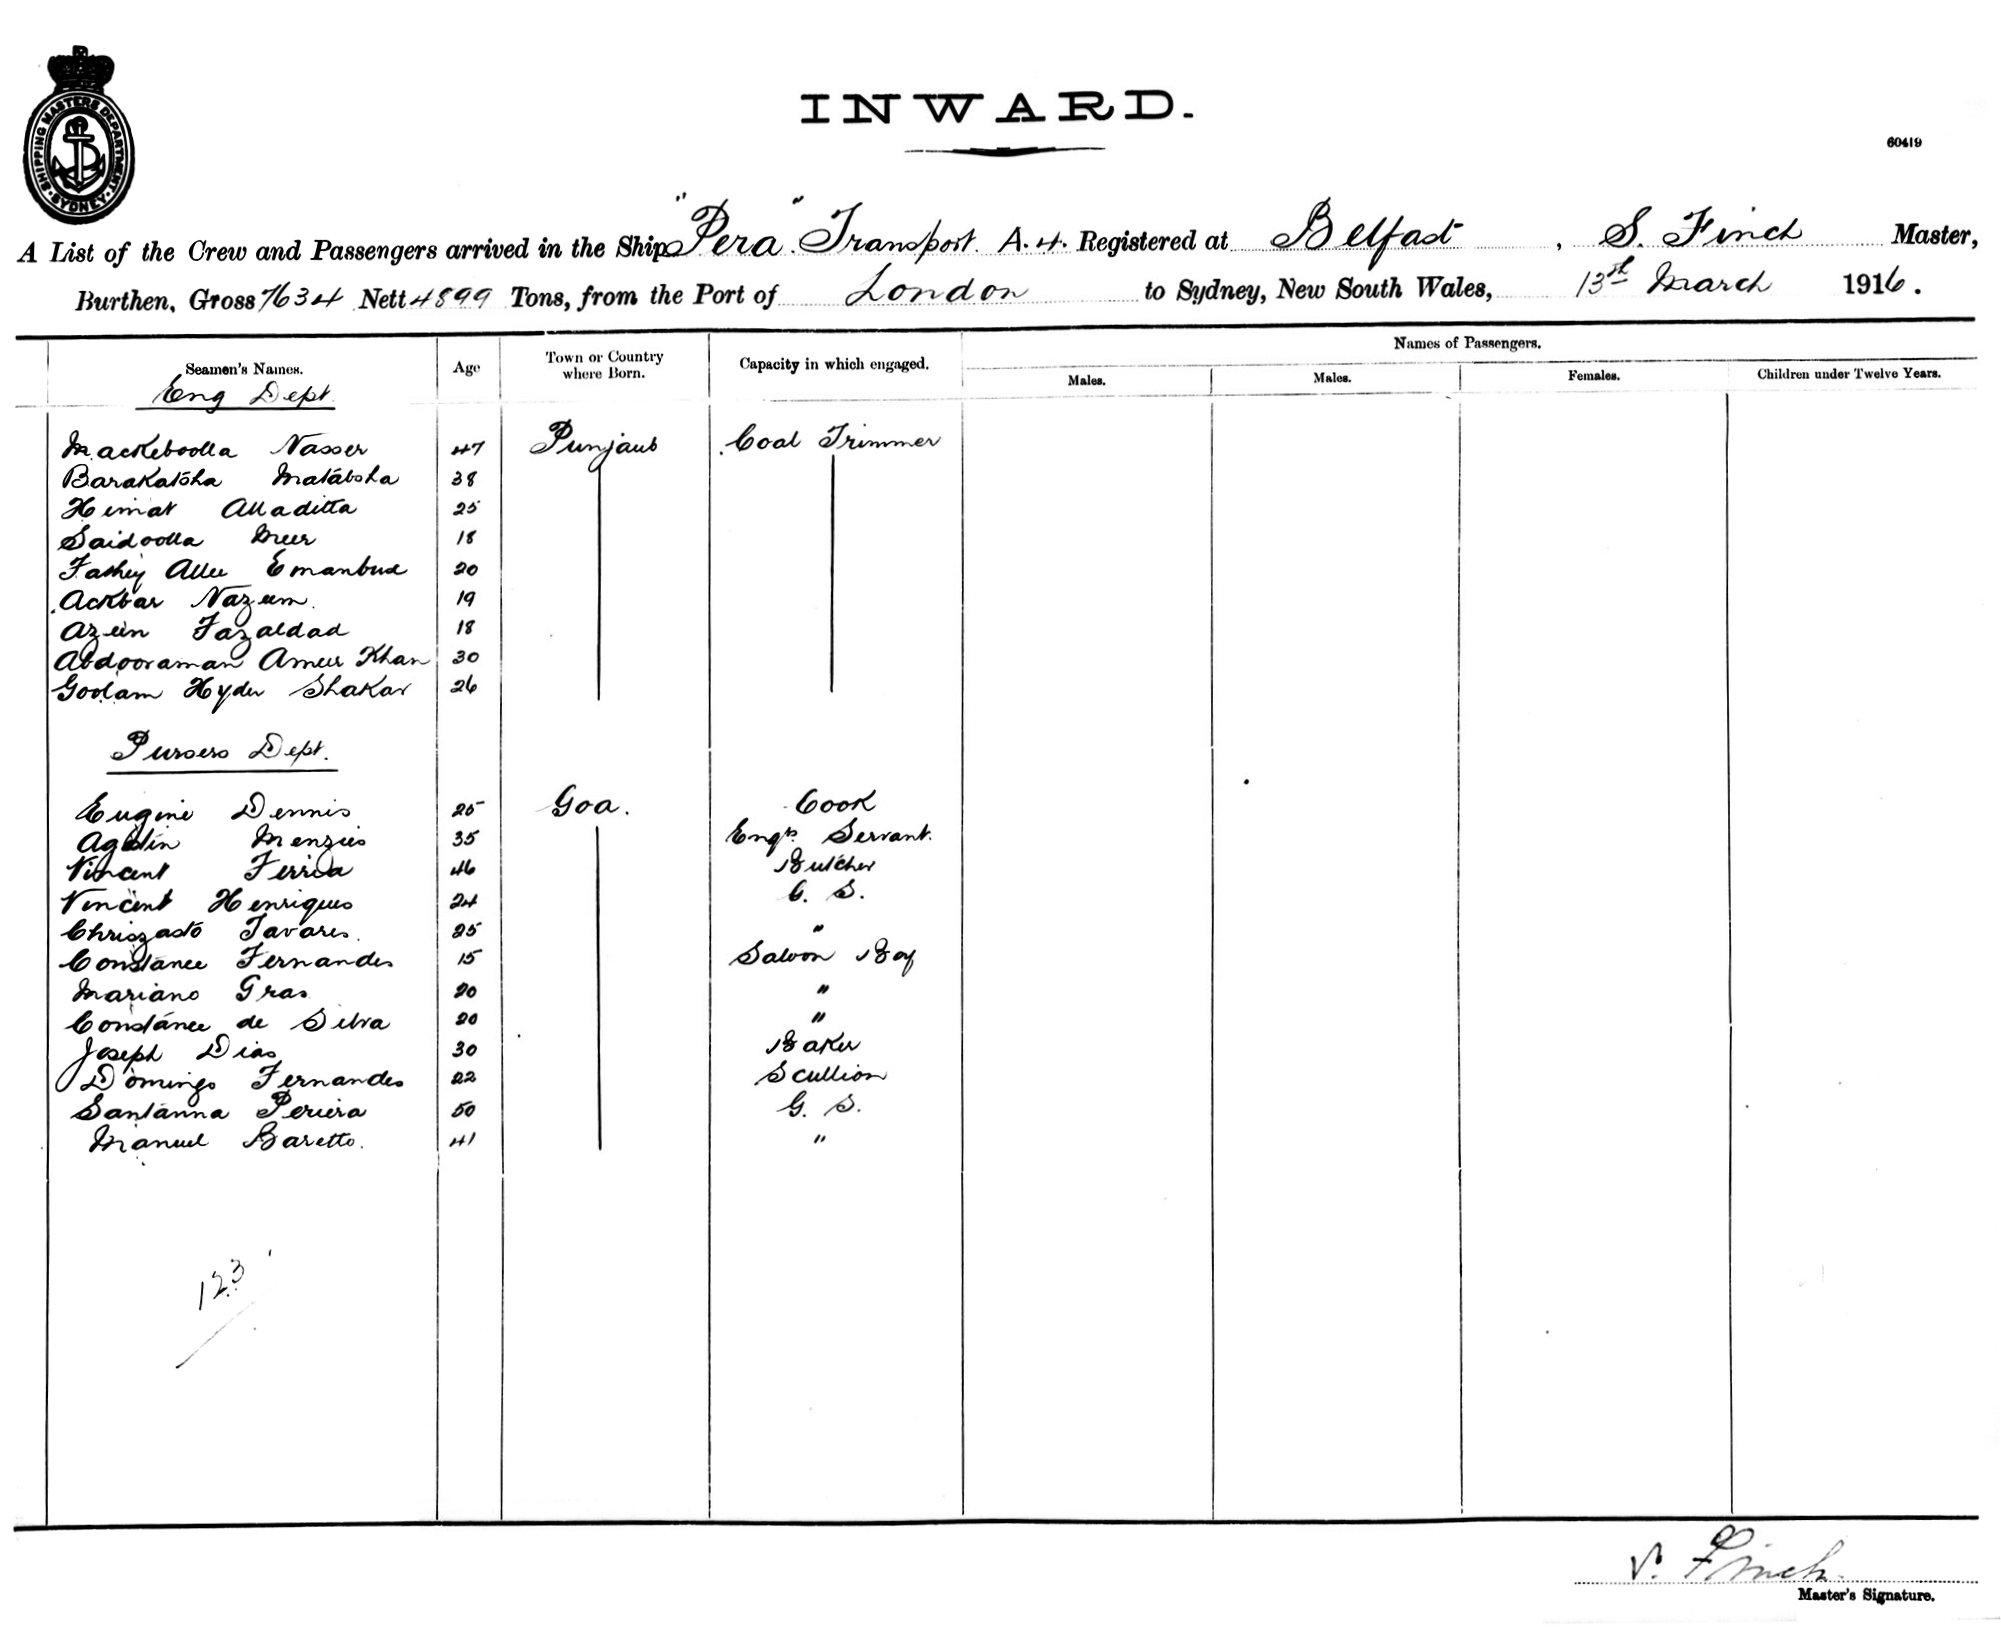 SHIPPING MASTERS DEPARTMENT · SYDNEY ·
INWARD.
60419
A List of the Crew and Passengers arrived in the Ship "Pera" Transport. A.4. Registered at Belfast, S. Finch Master,
Burthen, Gross 7634 Nett 4899 Tons, from the Port of London to Sydney, New South Wales, 13th March 1916.
Seamen's Names. Age Town or Country where Born. Capacity in which engaged. Names of Passengers.
Males. Males. Females. Children under Twelve Years.
Eng Dept.
Mackeboolla Nasser 47 Punjaub Coal Trimmer
Barakatsha Matabsha 38
Heimat Alladitta 25
Saidoolla Meer 18
Fathey Allee Emanbux 20
Ackbar Nazeem 19
Azein Fazaldad 18
Abdooraman Ameer Khan 30
Goolam Hyder Shakar 26
Pursers Dept.
Eugine Dennis 25 Goa. Cook
Agstin Menzies 35 Engrs Servant.
Vincent 46 Butcher
Vincent Henriques 24 G. S.
Tavares 25 "
Constance Fernandes 15 Saloon Boy
Mariano Gras 20 "
Constance de Silva 20 "
Joseph Dias 30 Baker
Domingo Fernandes 22 Scullion
Santanna Periera 50 G. S.
Manuel Baretto. 41 "
123
S. Finch.
Master's Signature.